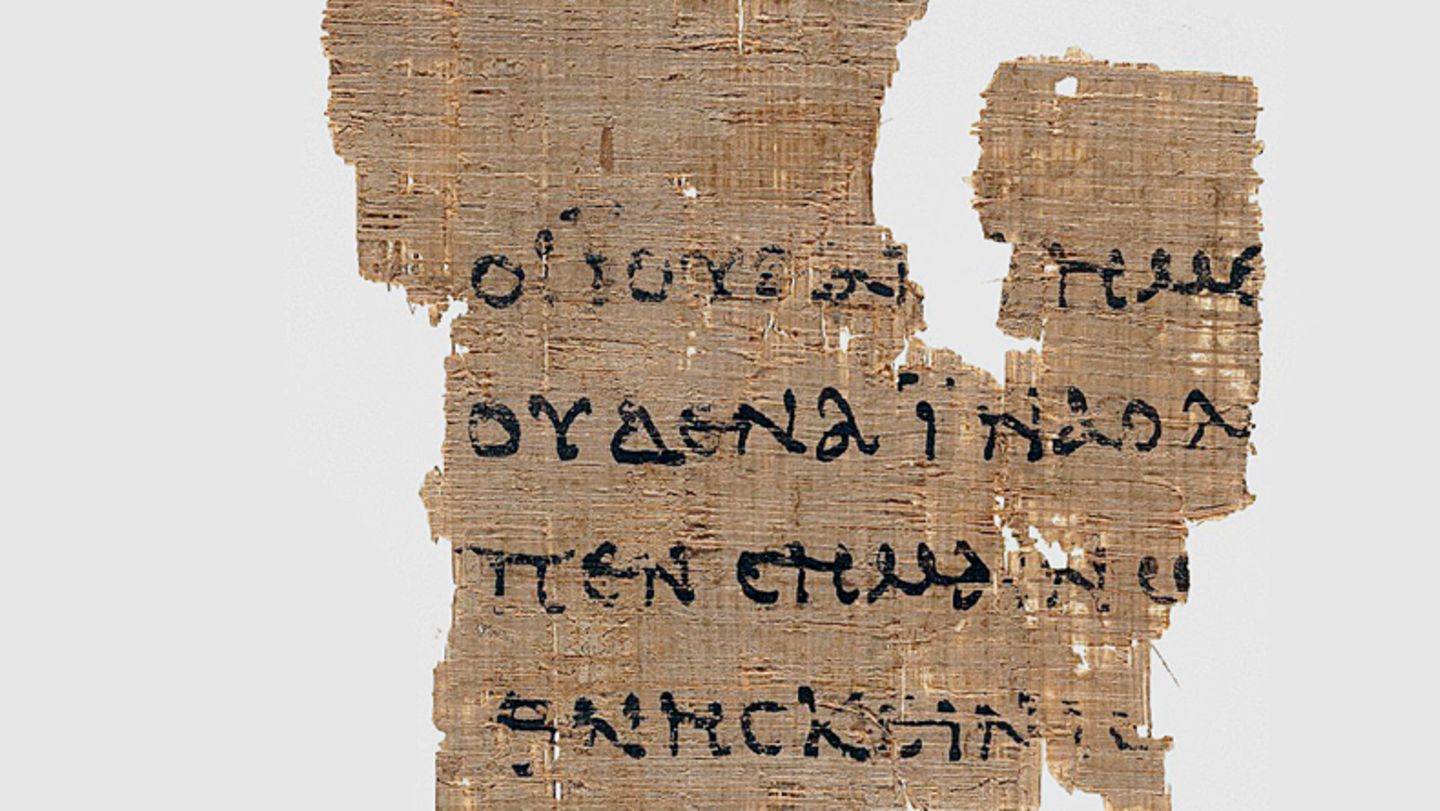 ΟΙ ΙΟΥΔΑΙ ΗΜΕ
ΟΥΔΕΝΑ ΙΝΑ Ο Λ
ΠΕΝ ΣΗΜΑΙΝΩ
ΘΝΗΣΚΕΙΝ ΙΣ